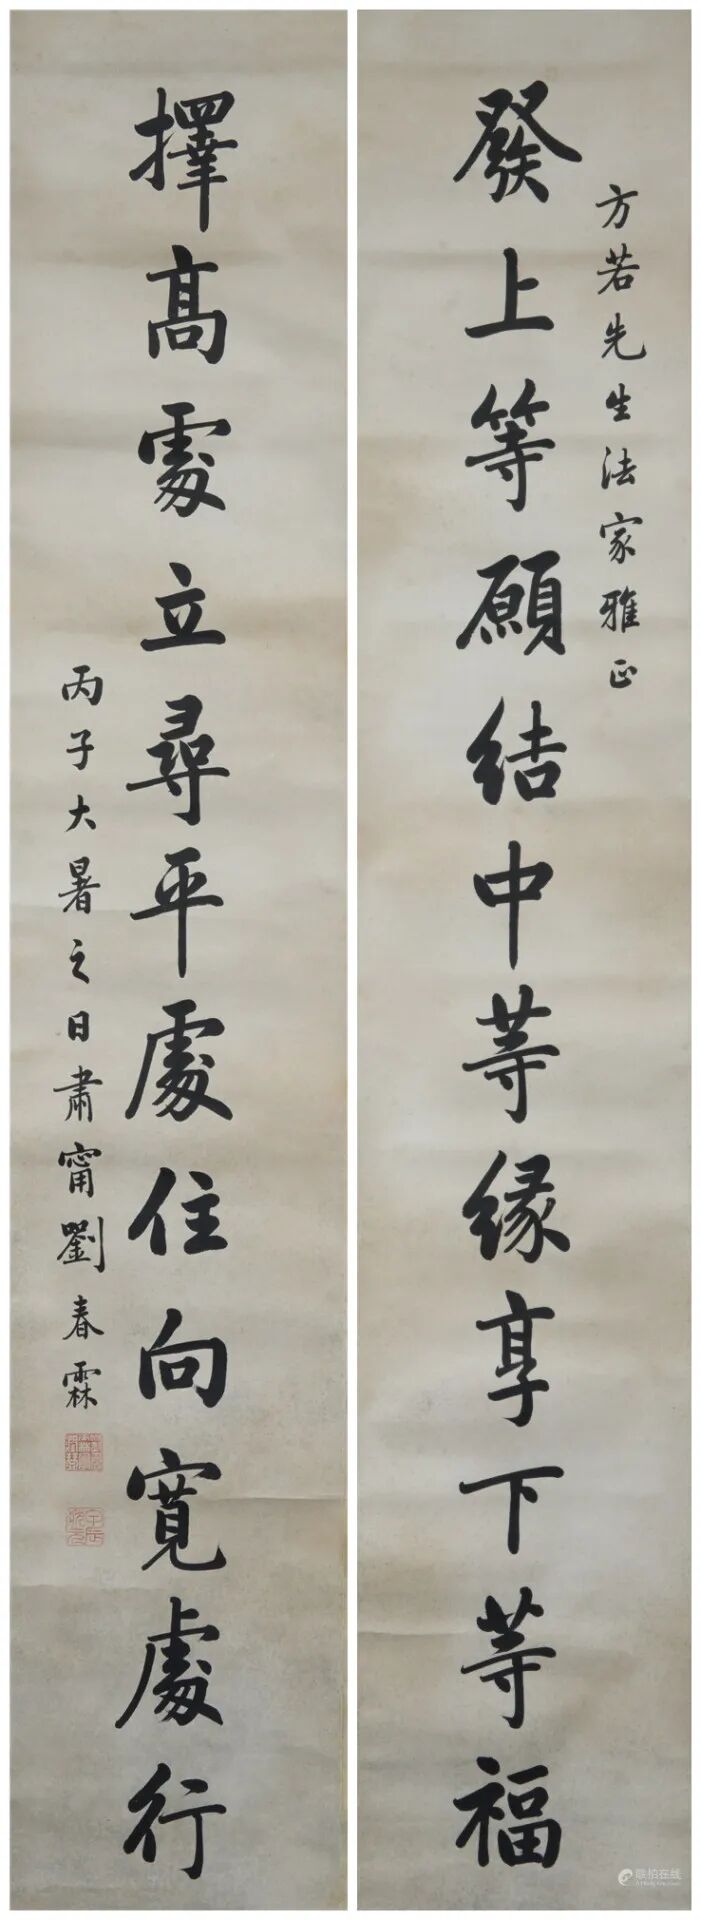 方若先生法家雅正
發上等願結中等緣享下等福
擇高處立尋平處住向寬處行
丙子大暑之日肅甯劉春霖
歌柏在线